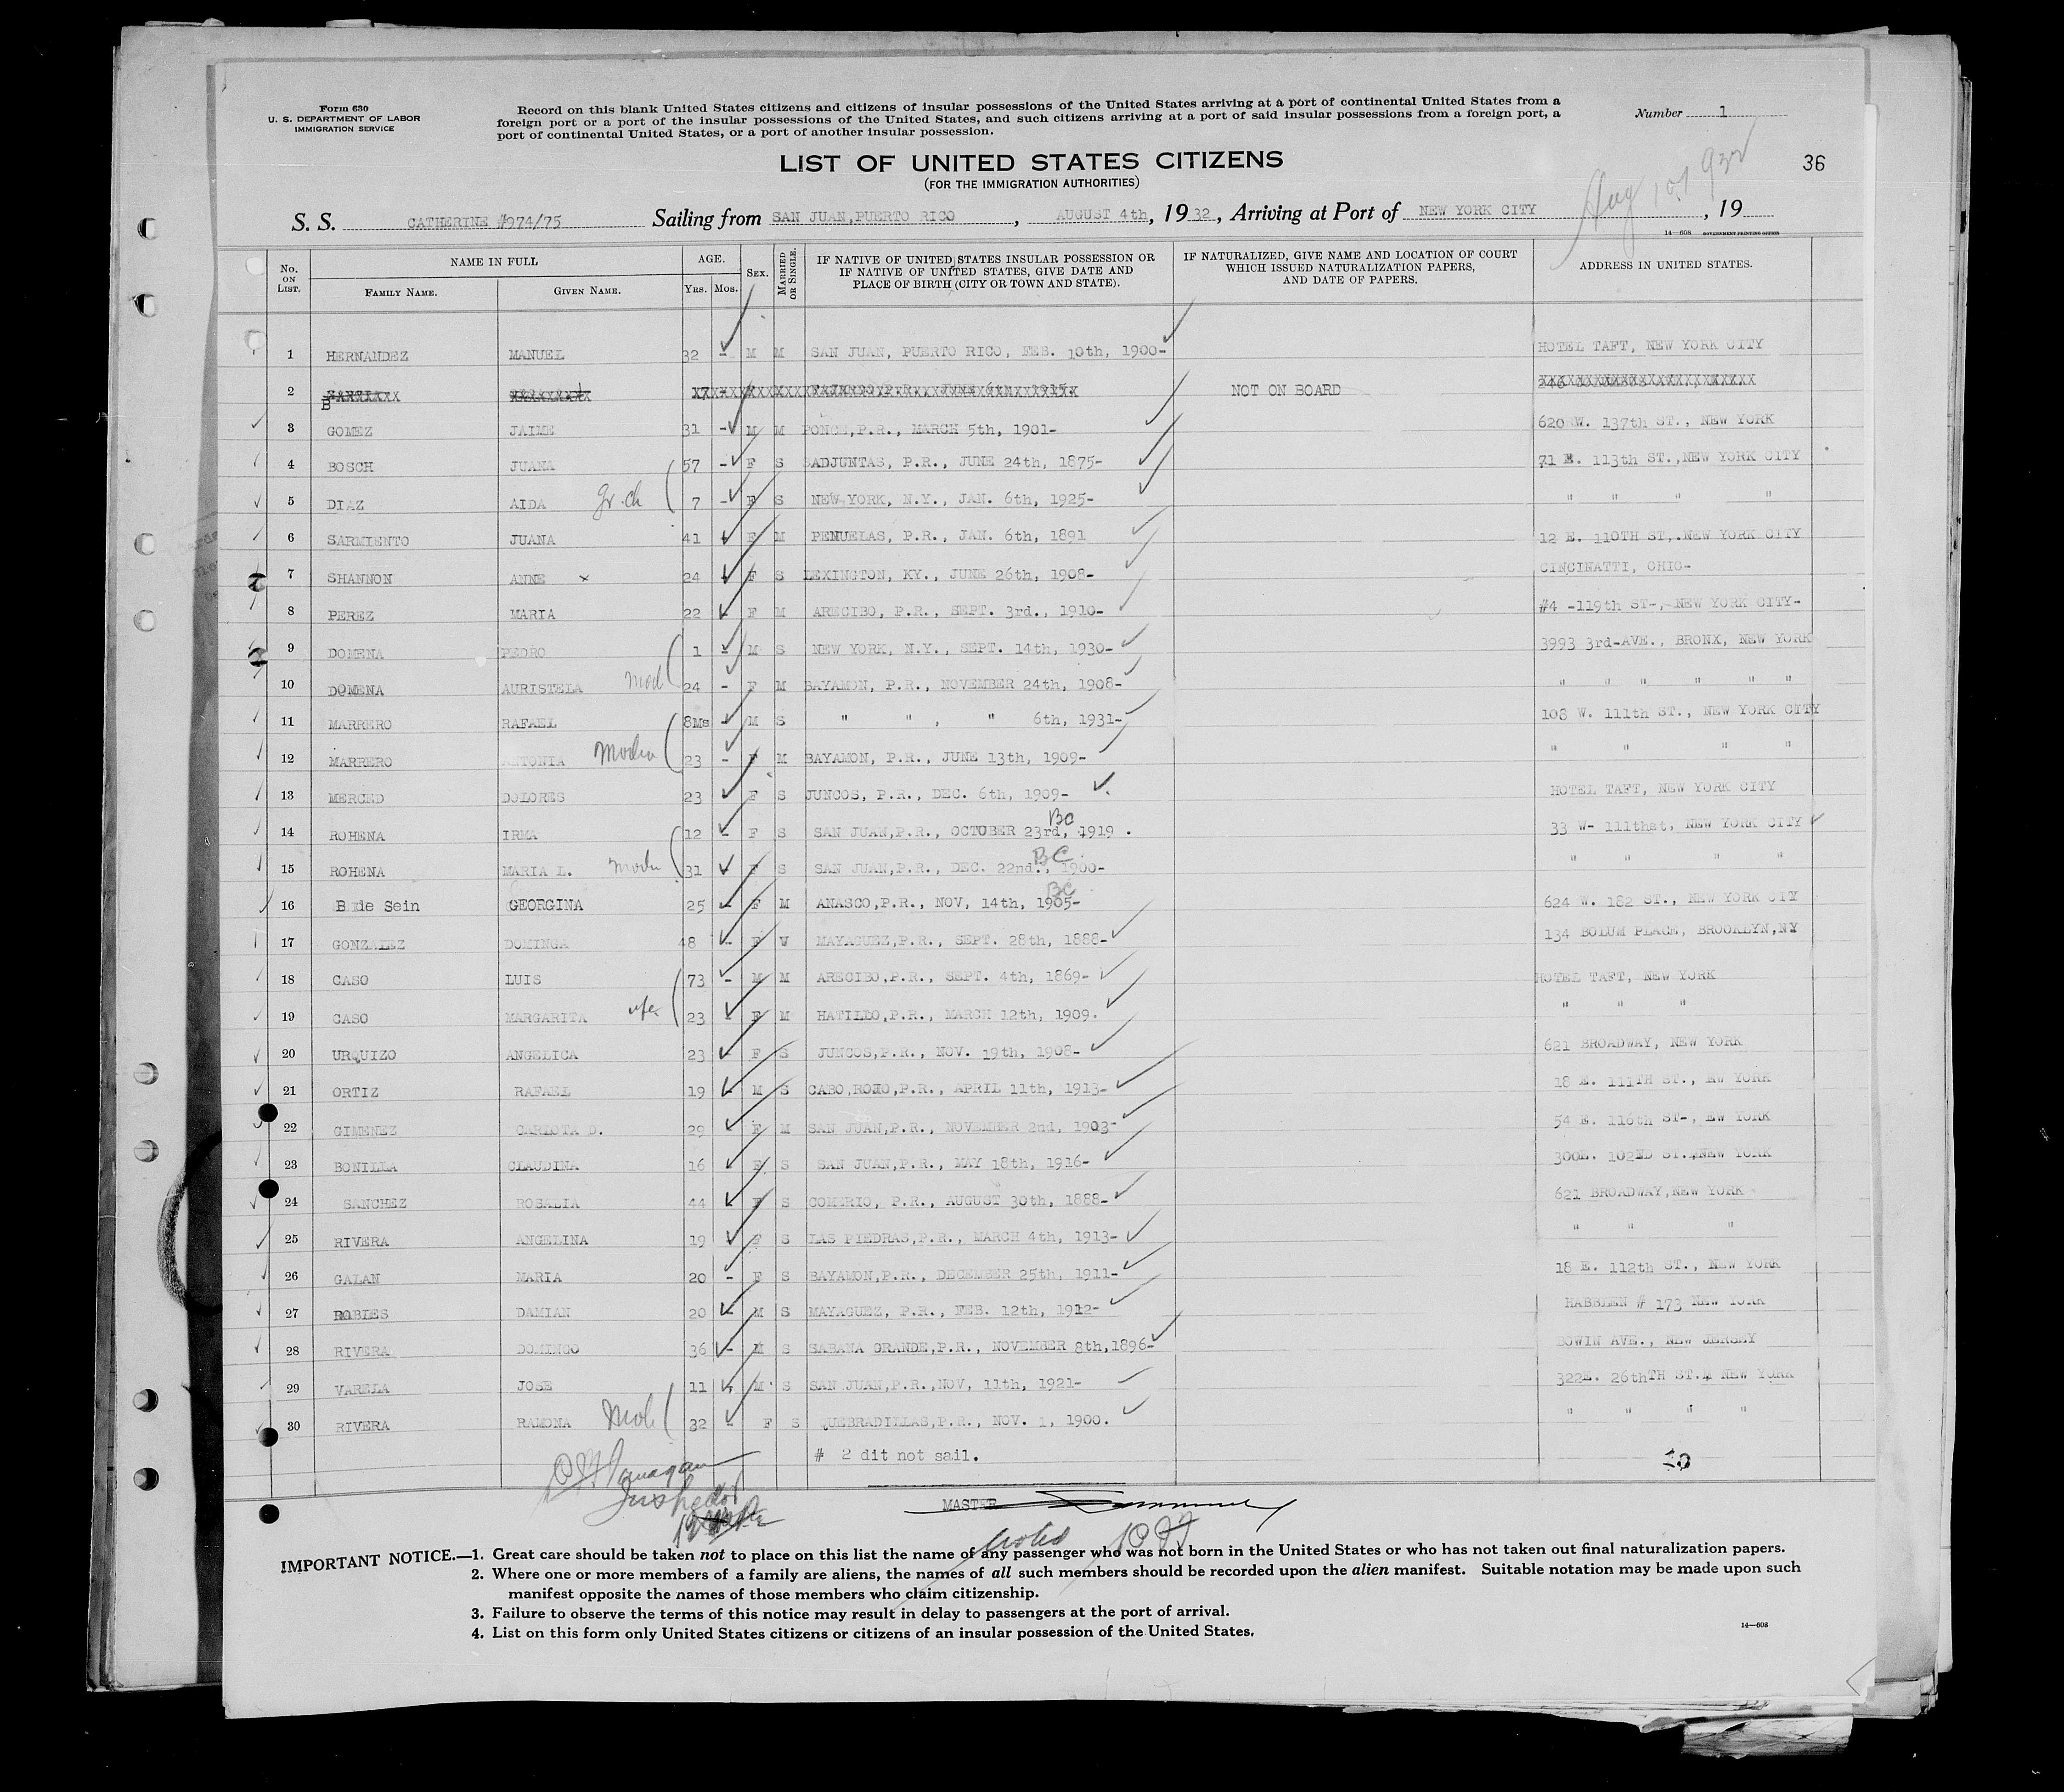 Form 630
U. S. DEPARTMENT OF LABOR
IMMIGRATION SERVICE
Record on this blank United States citizens and citizens of insular possessions of the United States arriving at a port of continental United States from a
foreign port or a port of the insular possessions of the United States, and such citizens arriving at a port of said insular possessions from a foreign port, a
port of continental United States, or a port of another insular possession.
Number 1
36
LIST OF UNITED STATES CITIZENS
(FOR THE IMMIGRATION AUTHORITIES)
S. S. CATHERINE #974/75 Sailing from SAN JUAN,PUERTO RICO , AUGUST 4th, 1932, Arriving at Port of NEW YORK CITY , 19
14—608 GOVERNMENT PRINTING OFFICE
No. ON LIST. NAME IN FULL FAMILY NAME. GIVEN NAME. AGE. YRS. MOS. SEX. MARRIED OR SINGLE. IF NATIVE OF UNITED STATES INSULAR POSSESSION OR IF NATIVE OF UNITED STATES, GIVE DATE AND PLACE OF BIRTH (CITY OR TOWN AND STATE). IF NATURALIZED, GIVE NAME AND LOCATION OF COURT WHICH ISSUED NATURALIZATION PAPERS, AND DATE OF PAPERS. ADDRESS IN UNITED STATES.
1 HERNANDEZ MANUEL 32 - M M SAN JUAN, PUERTO RICO, FEB. 10th, 1900- HOTEL TAFT, NEW YORK CITY
2 NOT ON BOARD
3 GOMEZ JAIME 31 - M M PONCE,P.R., MARCH 5th, 1901- 620 W. 137th ST., NEW YORK
4 BOSCH JUANA 57 - F S ADJUNTAS, P.R., JUNE 24th, 1875- 71 E. 113th ST.,NEW YORK CITY
5 DIAZ AIDA gr.ch 7 - F S NEW YORK, N.Y., JAN. 6th, 1925- " " " "
6 SARMIENTO JUANA 41 - F M PENUELAS, P.R., JAN. 6th, 1891 12 E. 110TH ST,.NEW YORK CITY
7 SHANNON ANNE x 24 - F S LEXINGTON, KY., JUNE 26th, 1908- CINCINATTI, OHIO-
8 PEREZ MARIA 22 - F M ARECIBO, P.R., SEPT. 3rd., 1910- #4 -119th ST-,-NEW YORK CITY-
9 DOMENA PEDRO 1 - M S NEW YORK, N.Y., SEPT. 14th, 1930- 3993 3rd-AVE., BRONX, NEW YORK
10 DOMENA AURISTELA 24 - F M BAYAMON, P.R., NOVEMBER 24th, 1908- " " " " " "
11 MARRERO RAFAEL 8Ms - M S " " , " 6th, 1931- 108 W. 111th ST., NEW YORK CITY
12 MARRERO ANTONIA 23 - F M BAYAMON, P.R., JUNE 13th, 1909- " " " "
13 MERCED DOLORES 23 - F S JUNCOS, P.R., DEC. 6th, 1909- HOTEL TAFT, NEW YORK CITY
14 ROHENA IRMA 12 - F S SAN JUAN,P.R., OCTOBER 23rd, 1919 . BC 33 W- 111that, NEW YORK CITY
15 ROHENA MARIA L. 31 - F S SAN JUAN,P.R., DEC. 22nd., 1900- BC " " " "
16 de Sein GEORGINA 25 - F M ANASCO,P.R., NOV, 14th, 1905- BC 624 W. 182 ST., NEW YORK CITY
17 GONZALEZ DOMINGA 48 - F W MAYAGUEZ,P.R., SEPT. 28th, 1888- 134 BOLUM PLACE, BROOKLYN,NY
18 CASO LUIS 73 - M M ARECIBO,P.R., SEPT. 4th, 1869- HOTEL TAFT, NEW YORK
19 CASO MARGARITA 23 - F M HATILDO,P.R., MARCH 12th, 1909. " " "
20 URQUIZO ANGELICA 23 - F S JUNCOS,P.R., NOV. 19th, 1908- 621 BROADWAY, NEW YORK
21 ORTIZ RAFAEL 19 - M S CABO,ROJO,P.R., APRIL 11th, 1913- 18 E. 111TH ST., NW YORK
22 GIMENEZ CARLOTA D. 29 - F M SAN JUAN,P.R., NOVEMBER 2nd, 1903- 54 E. 116th ST-, EW YORK
23 BONILLA CLAUDINA 16 - F S SAN JUAN,P.R., MAY 18th, 1916- 300E. 102ND ST.,NEW YORK
24 SANCHEZ ROSALIA 44 - F S COMERIO, P.R., AUGUST 30th, 1888- 621 BROADWAY,NEW YORK
25 RIVERA ANGELINA 19 - F S LAS PIEDRAS,P.R., MARCH 4th, 1913- " " "
26 GALAN MARIA 20 - F S BAYAMON,P.R., DECEMBER 25th, 1911- 18 E. 112th ST., NEW YORK
27 ROBLES DAMIAN 20 - M S MAYAGUEZ, P.R., FEB. 12th, 1912- HABBLEN # 173 NEW YORK
28 RIVERA DOMINGO 36 - M S SABANA GRANDE,P.R., NOVEMBER 8th,1896- BOWIN AVE., NEW JERSEY
29 VARELA JOSE 11 - M S SAN JUAN,P.R.,NOV, 11th, 1921- 322E. 26thTH ST. NEW YORK
30 RIVERA RAMONA 32 - F S QUEBRADILLAS,P.R., NOV. 1, 1900. " " " "
# 2 dit not sail.
Inspector
MASTER
IMPORTANT NOTICE.—1. Great care should be taken not to place on this list the name of any passenger who was not born in the United States or who has not taken out final naturalization papers.
2. Where one or more members of a family are aliens, the names of all such members should be recorded upon the alien manifest. Suitable notation may be made upon such
manifest opposite the names of those members who claim citizenship.
3. Failure to observe the terms of this notice may result in delay to passengers at the port of arrival.
4. List on this form only United States citizens or citizens of an insular possession of the United States.
14—608